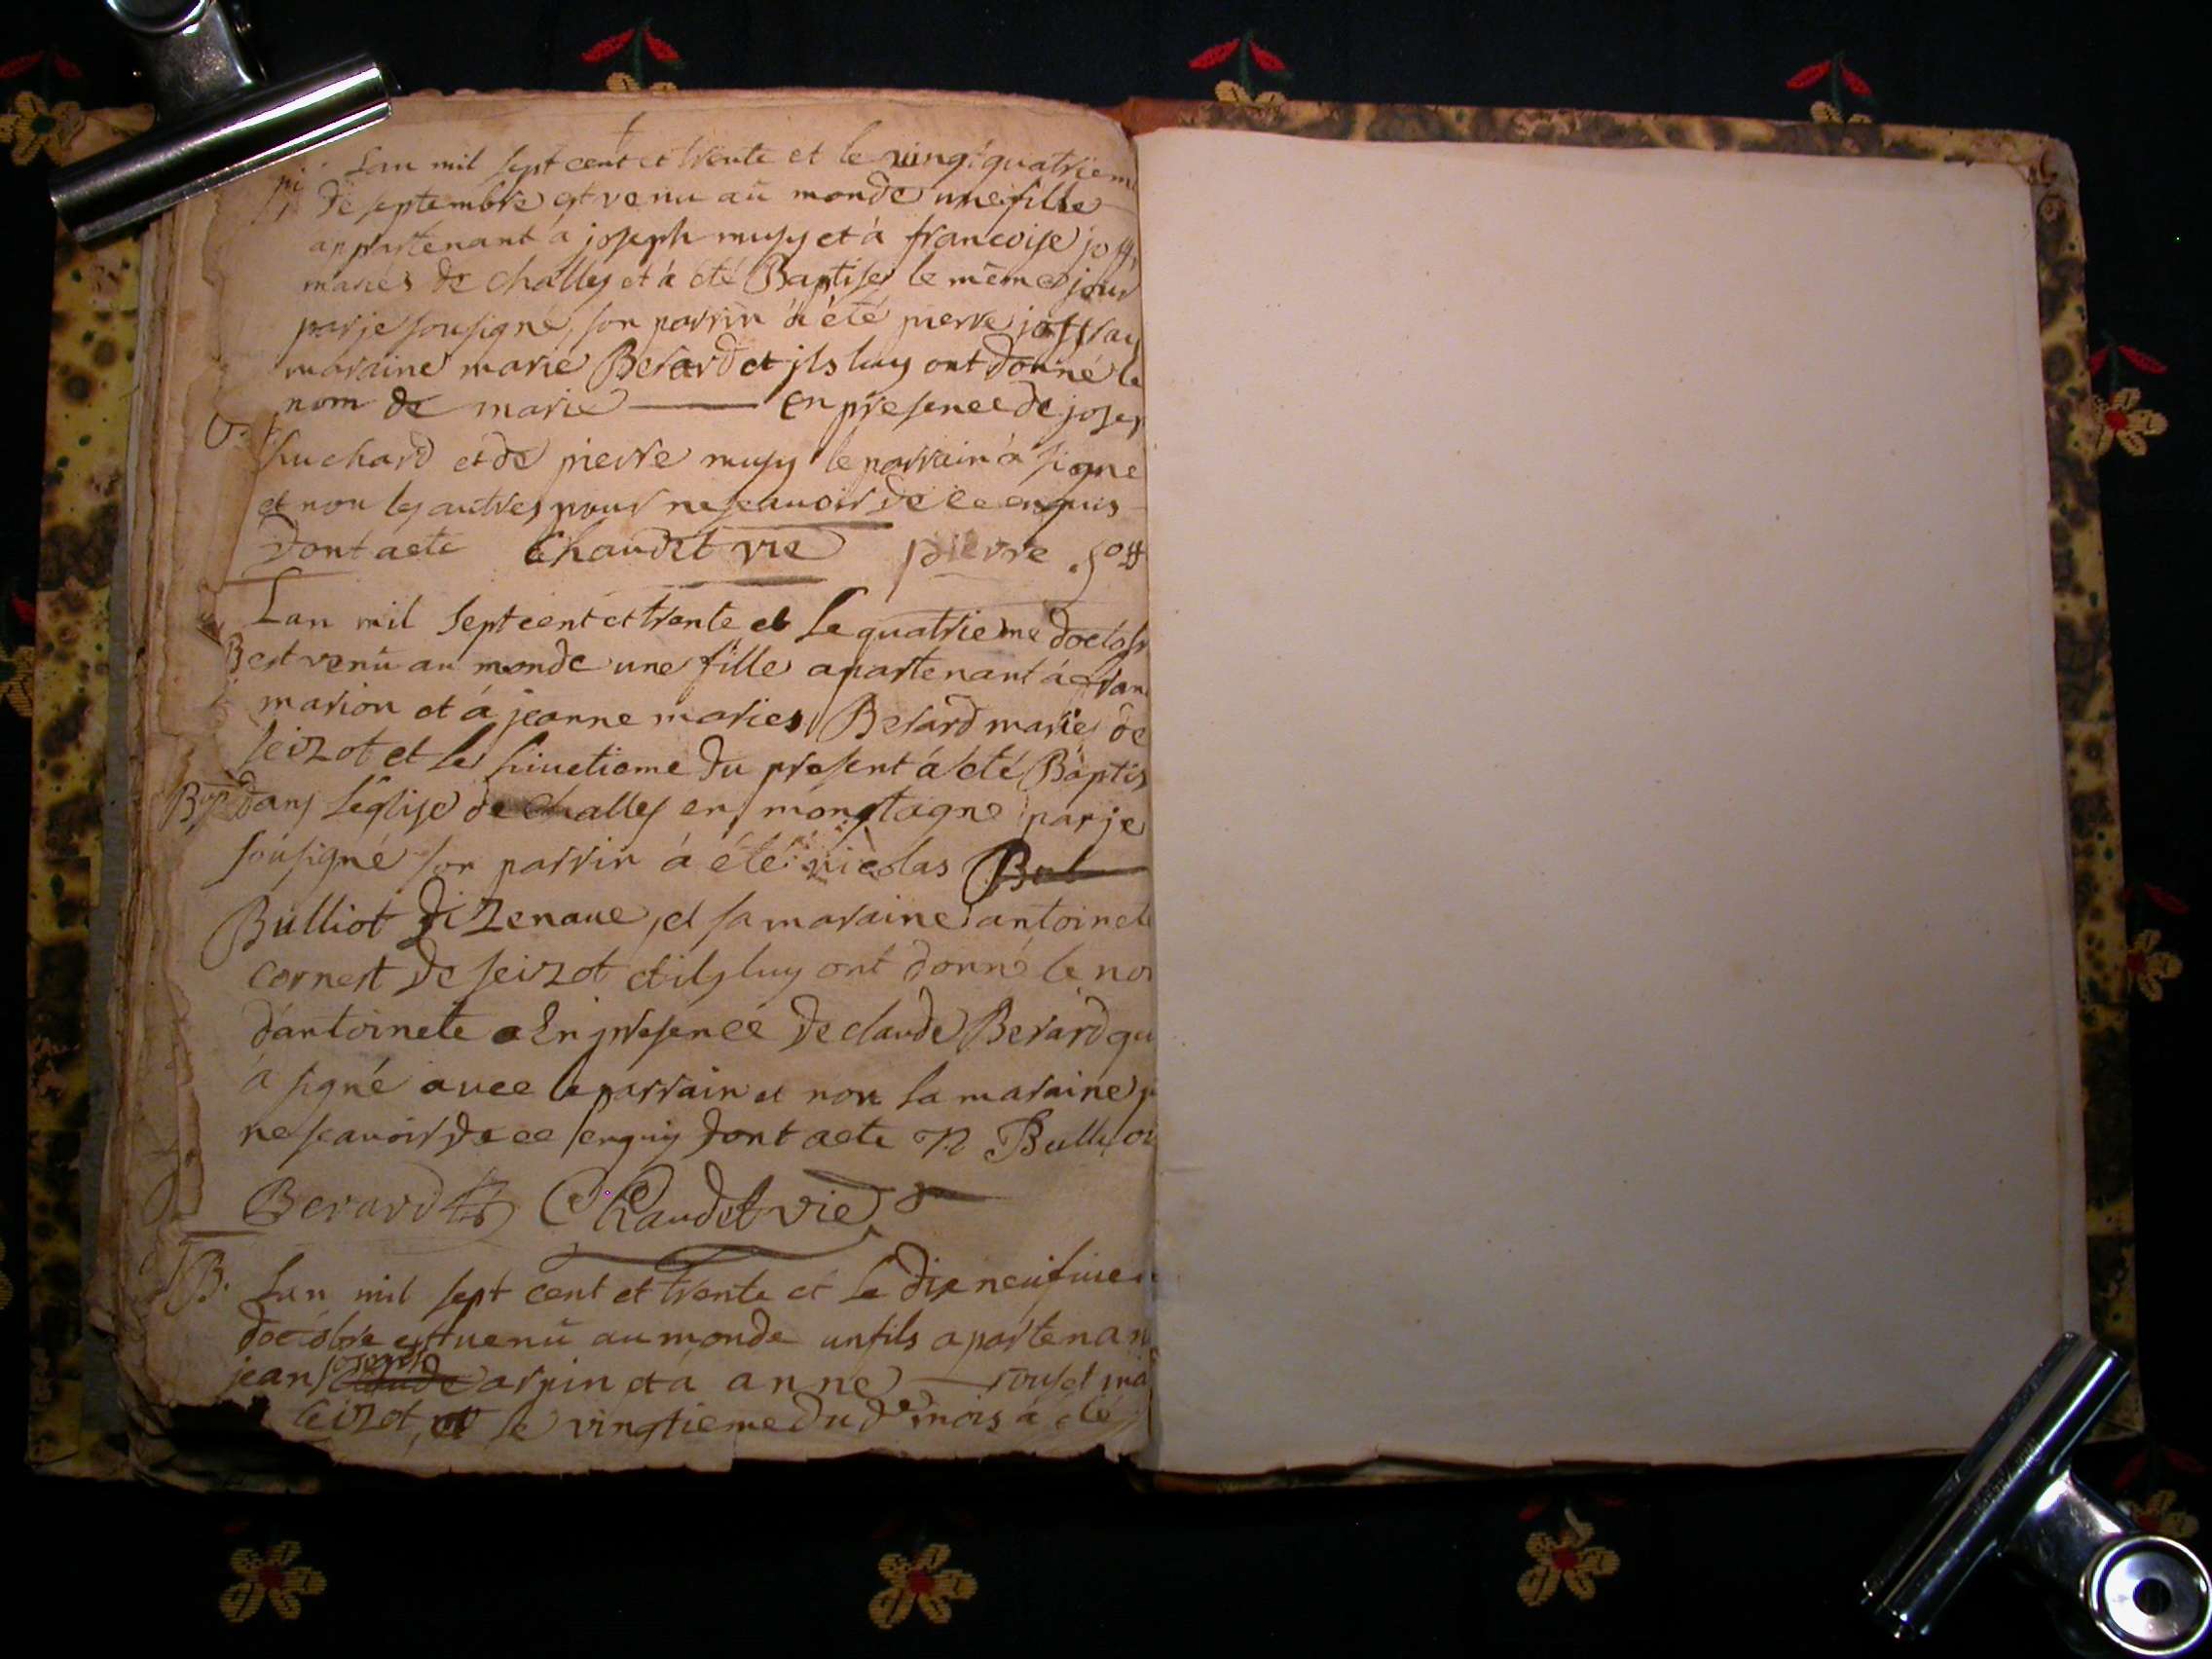 Lan mil sept cent et trente et le vingt quatriem
de septembre est venu au monde une fille
appartenant a joseph musy et à francoise joff
mariés de challes et à été Baptisée le même jour
par je sousigné, son parrin à été pierre joffray
maraine marie Berard et jls luy ont donné le
nom de marie en presence de josep
huchard et de pierre musy le parrain à signe
et non les autres pour ne scauoir de ce enquis
dont acte Chaudet vre pierre joff
Lan mil Sept cent et trente et Le quatrieme doctobr
B est venü au monde une fille apartenant à fran
marion et à jeanne maries Berard mariés de
seizot et le du present à été Baptis
Bap dans Léglise de challes en montagne par je
sousigné son parrin à été nicolas Bul
Bulliot di Zenaue, et sa maraine antoinete
cornest de seizot et ils luy ont donné le no
d'antoinete En presence de claude Berard qu
à signé auec le parrain et non la maraine p
ne scauoir de ce enquis dont acte N Bullio
Berard Chaudet vie
B. Lan mil sept cent et trente et Le dix neufuie
doctobre est uenü au monde un fils apartenan
jean claude arpin et à anne rouset ma
seizot, et le vingtieme du d mois à été